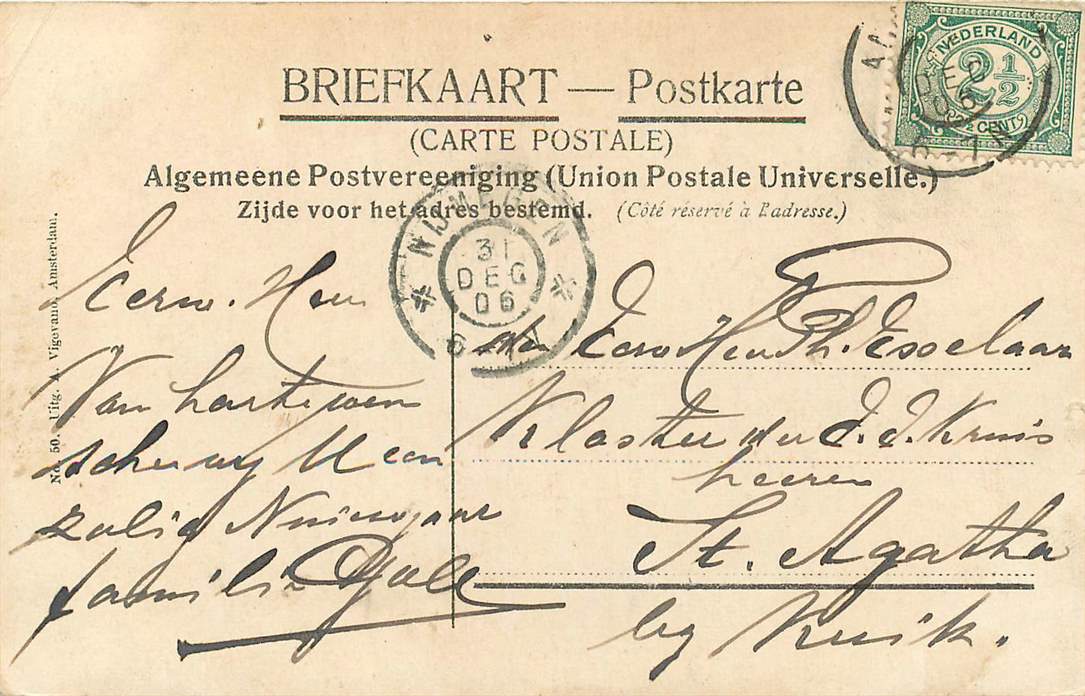 BRIEFKAART — Postkarte
(CARTE POSTALE)
Algemeene Postvereeniging (Union Postale Universelle.)
Zijde voor het adres bestemd. (Côté réservé à l'adresse.)
NEDERLAND
2½
(2½ CENT)
DEC
06
6-7N
NIJMEGEN
31
DEC
06
No. 50. Uitg. A. Vigevano, Amsterdam.
Eerw. Heer
Van harte wen
schen wy U een
zalig Nieuwjaar
familie
den Eerw Heer Ph. Esselaar
Klooster der J. J. Kruis
heeren
St. Agatha
by Kuik.